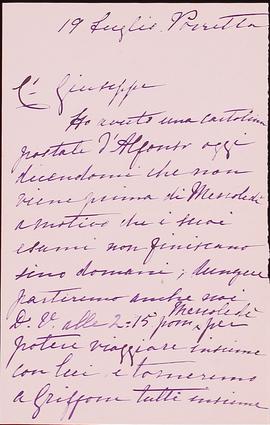 19 Luglio. Porretta
Co Giuseppe
Ho avuto una cartolina
postale d'Alfonso oggi
dicendomi che non
viene prima di Mercoledì
a motivo che i suoi
esami non finiscano
sino domani; dunque
partiremo ambe noi
Mercoledì
D. V. alle 2:15 pom, per
potere viaggiare insieme
con lui e torneremo
a Griffone tutti insieme